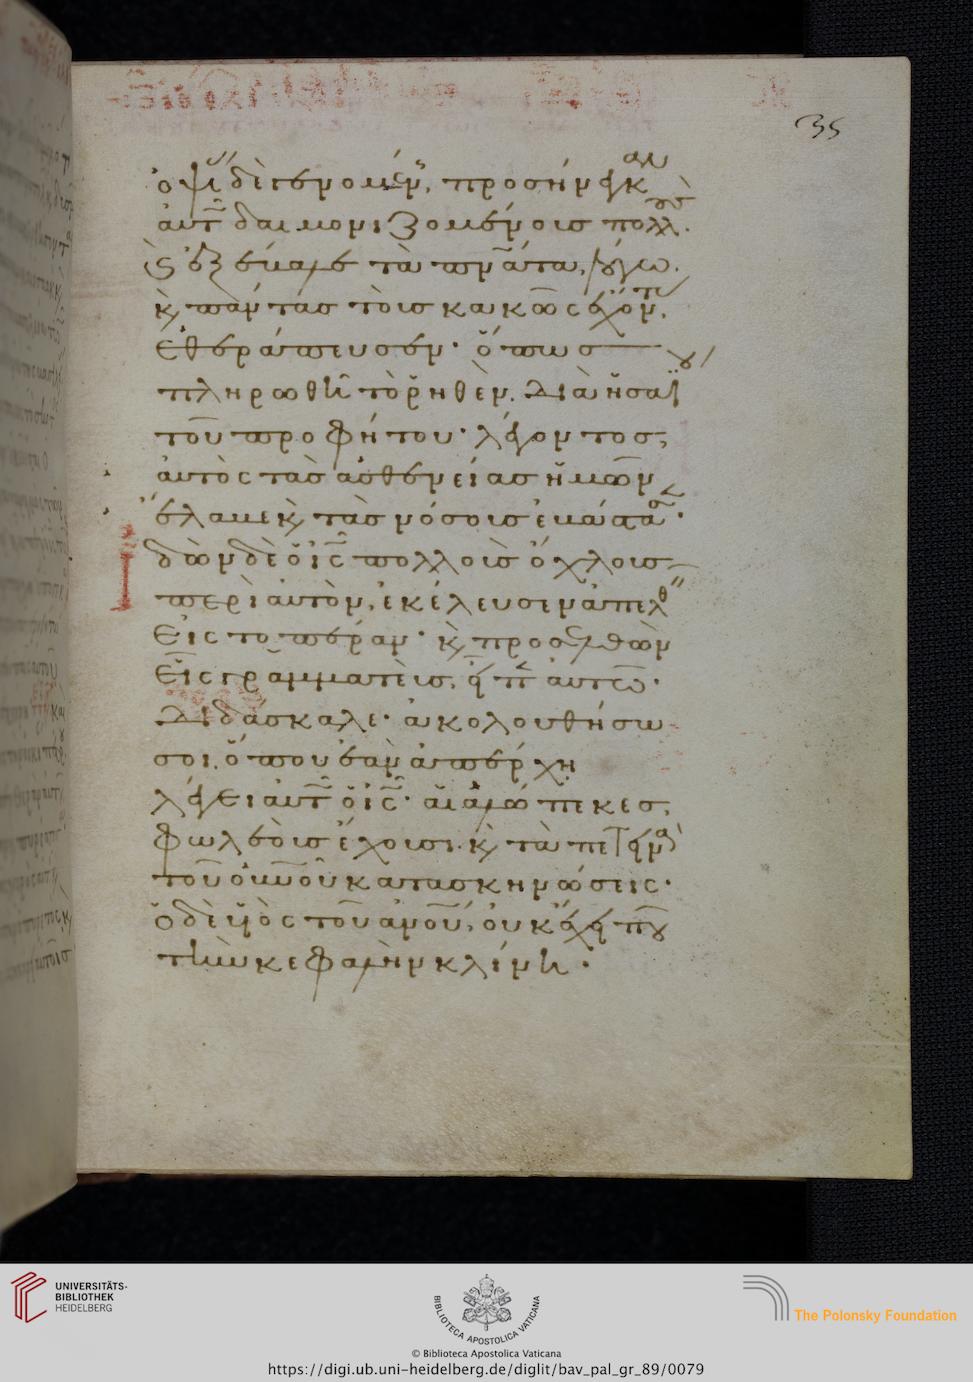 35
ὀψΐ δὲ γενομέν, προσήνεγκαν
αὐτ δαιμονιζομένοισ πολλοὺσ.
κ ἐξέβαλε τὰ πνᾶτα, λόγω.
κ πάντασ τοὺσ κακῶς ἔχοντ,
ἐθεράπευσεν· ὅπωσ
πληρωθῆ τὸ ῥηθὲν. διὰ ἡσαΐου
τοῦ προφήτου· λέγοντοσ,
αὐτὸς τὰσ ἀσθενείασ ἡμῶν
ἔλαβε κ τὰσ νόσουσ ἐβάστασ·
Ἰδὼν δὲ ὁ ις πολλοὺσ ὄχλουσ
περὶ αὐτὸν, ἐκέλευσεν ἀπελθ
εἰς το πέραν· κ προσελθὼν
εἷς γραμματεὺσ, εἶπ αὐτῶ·
διδάσκαλε· ἀκολουθήσω
σοι. ὅπου ἐὰν ἀπέρχη
λέγει αὐτ ὁ ις· αἱ ἀλώπεκεσ,
φωλεοὺσ ἔχουσι. κ τὰ πετεινὰ
τοῦ οὐνοῦ κατασκηνώσεις·
ὁ δὲ υἱὸς τοῦ ἀνοῦ, οὐκ ἔχει ποῦ
τὴν κεφαλὴν κλίνη·
UNIVERSITÄTS-
BIBLIOTHEK
HEIDELBERG
BIBLIOTECA APOSTOLICA VATICANA
© Biblioteca Apostolica Vaticana
The Polonsky Foundation
https://digi.ub.uni-heidelberg.de/diglit/bav_pal_gr_89/0079